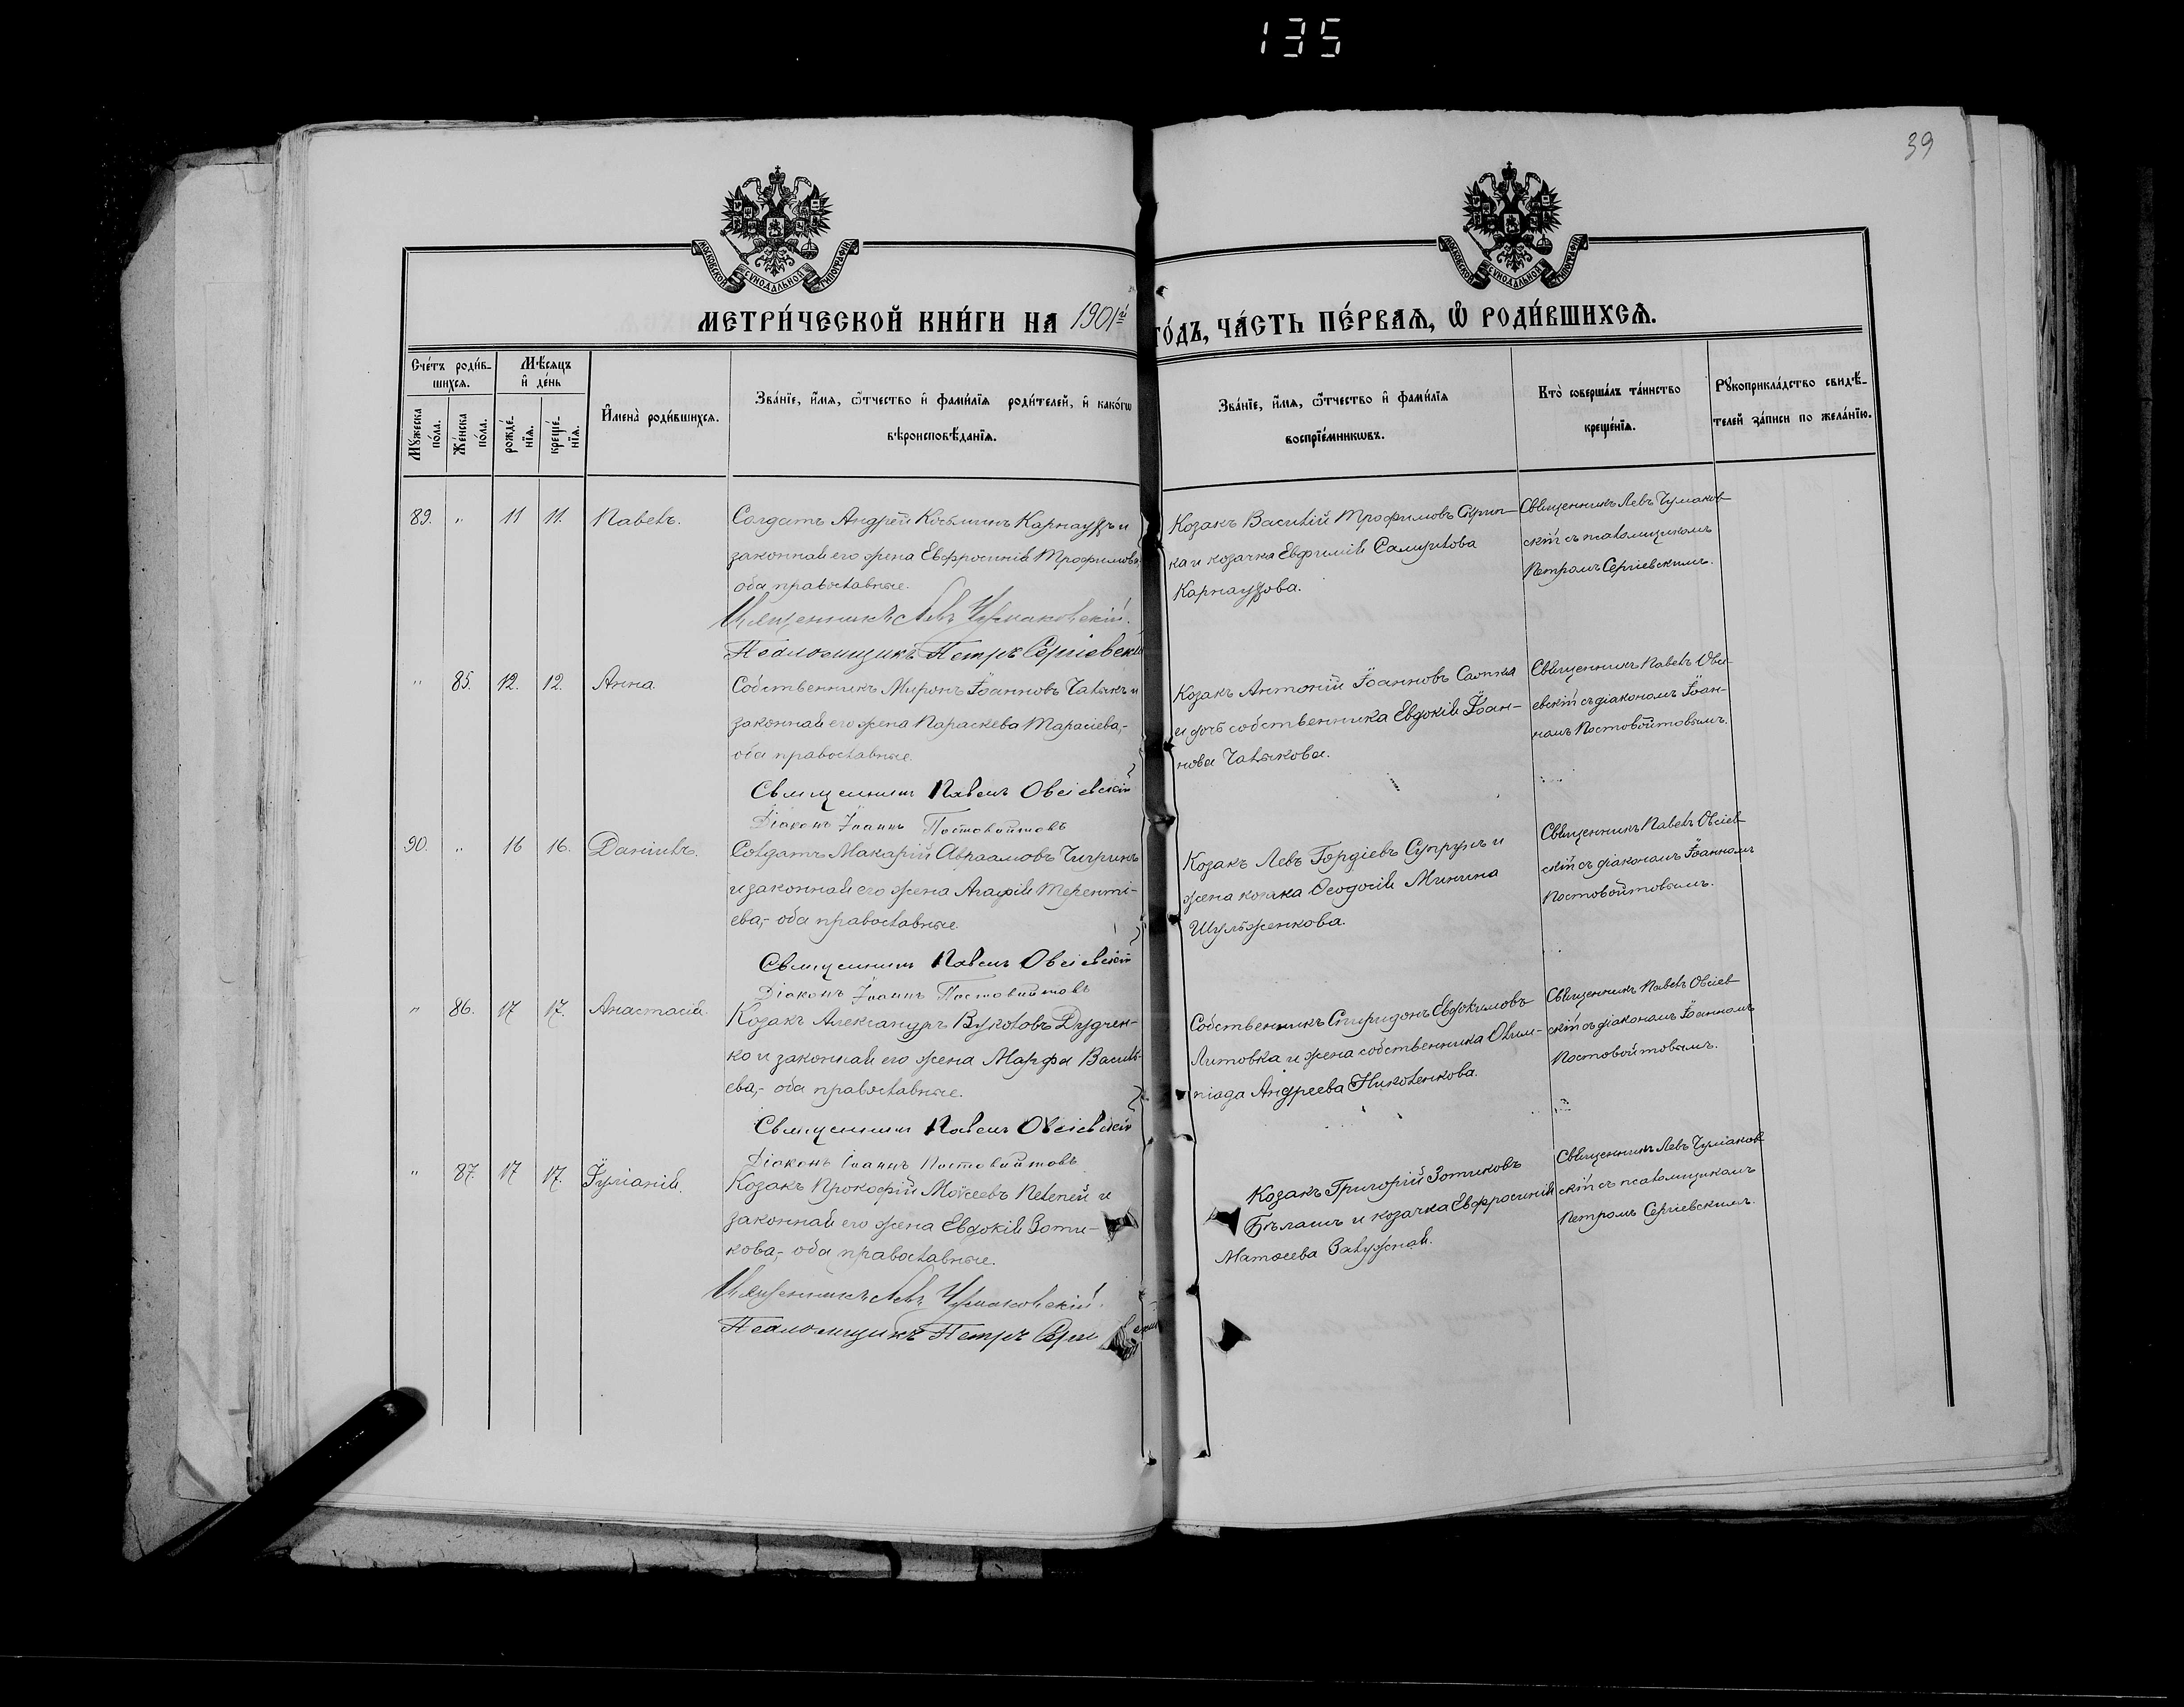 135
39
МОСКОВСКОЙ СУНОДАЛЬНОЙ ТИПОГРАФІИ
МОСКОВСКОЙ СУНОДАЛЬНОЙ ТИПОГРАФІИ
МЕТРИ́ЧЕСКОЙ КНИ́ГИ НА 1901й
ГО́ДЪ, ЧА́СТЬ ПЕ́РВАѦ, Ѽ РОДИ́ВШИХСѦ.
Сче́тъ роди́в-
шихсѧ.
Мѣ́сѧцъ
и҆ де́нь
Мꙋ́жеска
по́ла.
Же́нска
по́ла.
рожде́-
нїѧ.
креще́-
нїѧ.
И҆мена̀ роди́вшихсѧ.
Зва́нїе, и҆́мѧ, ѻ҆́тчество и҆ фами́лїѧ роди́телей, и҆ како́гѡ
вѣроисповѣ́данїѧ.
Зва́нїе, и҆́мѧ, ѻ҆́тчество и҆ фами́лїѧ
воспрїе́мникѡвъ.
Кто̀ соверша́лъ та́инство
креще́нїѧ.
Рꙋкоприкла́дство свидѣ́-
телей за́писи по жела́нїю.
89. „ 11 11. Павелъ.
Солдатъ Андрей Косьминъ Карнаухъ и
законная его жена Евфросинія Трофимова,
оба православные.
Священникъ Левъ Чумаковскій.
Псаломщикъ Петръ Сергіевскій
Козакъ Василій Трофимовъ Скрип-
ка и козачка Евфимія Самуилова
Карнаухова.
Священникъ Левъ Чумаков-
скій съ псаломщикомъ
Петромъ Сергіевскимъ.
„ 85. 12. 12. Анна.
Собственникъ Миронъ Іоанновъ Чалыкъ и
законная его жена Параскева Тарасіева,-
оба православные.
Священникъ Павелъ Овсіевскій
Діаконъ Іоаннъ Постовойтовъ
Козакъ Антоній Іоанновъ Саопка
и дочь собственника Евдокія Іоан-
нова Чалыкова.
Священникъ Павелъ Овсі-
евскій съ діакономъ Іоан-
номъ Постовойтовымъ.
90. „ 16 16. Даніилъ.
Солдатъ Макарій Авраамовъ Чигринъ
и законная его жена Агафія Теренті-
ева,- оба православные.
Священникъ Павелъ Овсіевскій
Діаконъ Іоаннъ Постовойтовъ
Козакъ Левъ Гордіевъ Супрунъ и
жена козака Ѳеодосія Минина
Шульженкова.
Священникъ Павелъ Овсіев-
скій съ діакономъ Іоанномъ
Постовойтовымъ.
„ 86. 17 17. Анастасія.
Козакъ Александръ Вуколовъ Дудчен-
ко и законная его жена Марфа Василь-
ева,- оба православные.
Священникъ Павелъ Овсіевскій
Діаконъ Іоаннъ Постовойтовъ
Собственникъ Спиридонъ Евдокимовъ
Литовка и жена собственника Олим-
піада Андреева Николенкова.
Священникъ Павелъ Овсіев-
скій съ діакономъ Іоанномъ
Постовойтовымъ.
„ 87. 17 17. Іуліанія.
Козакъ Прокофій Моѵсеевъ Пелепей и
законная его жена Евдокія Зоти-
кова,- оба православные.
Священникъ Левъ Чумаковскій.
Псаломщикъ Петръ Сергіевскій
Козакъ Григорій Зотиковъ
Бѣлашъ и козачка Евфросинія
Матѳеева Залужная.
Священникъ Левъ Чумаков-
скій съ псаломщикомъ
Петромъ Сергіевскимъ.